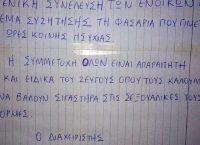 ΕΝΙΚΗ ΣΥΝΕΛΕΥΣΗ ΤΩΝ ΕΝΟΙΚΩΝ
ΕΜΑ ΣΥΖΗΤΗΣΗΣ ΤΗ ΦΑΣΑΡΙΑ ΠΟΥ ΓΙΝΕΤ
ΩΡΕΣ ΚΟΙΝΗΣ ΗΣΥΧΙΑΣ
Η ΣΥΜΜΕΤΟΧΗ ΟΛΩΝ ΕΙΝΑΙ ΑΠΑΡΑΙΤΗΤ
ΚΑΙ ΕΙΔΙΚΑ ΤΟΥ ΖΕΥΓΟΥΣ ΟΠΟΥ ΤΟΥΣ ΚΑΛΟΥΜ
ΝΑ ΒΑΛΟΥΝ ΣΙΓΑΣΤΗΡΑ ΣΤΙΣ ΣΕΞΟΥΑΛΙΚΕΣ ΤΟΥΣ
ΟΡΜΕΣ
Ο ΔΙΑΧΕΙΡΙΣΤΗΣ